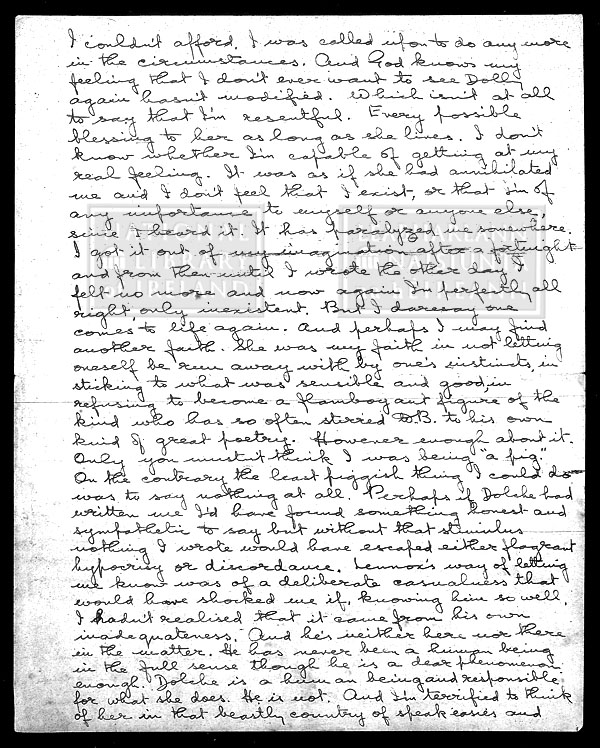 I couldn't afford. I was called upon to do any more
in the circumstances. And God knows my
feeling that I don't ever want to see Dolly
again hasn't modified. Which isn't at all
to say that I'm resentful. Every possible
blessing to her as long as she lives. I don't
know whether I'm capable of getting at my
real feeling. It was as if she had annihilated
me and I don't feel that I exist, or that I'm of
any importance to myself or anyone else,
since I heard it. It has paralyzed me somewhere.
I got it out of my imagination after a fortnight
and from then until I wrote the other day I
felt no more and now again I'm perfectly all
right, only inexistent. But I daresay one
comes to life again. And perhaps I may find
another faith. She was my faith in not letting
oneself be run away with by one's instincts, in
sticking to what was sensible and good, in
refusing to become a flamboyant figure of the
kind who has so often stirred D.B. to his own
kind of great poetry. However enough about it.
Only you mustn't think I was being "a pig".
On the contrary the least piggish thing I could do
was to say nothing at all. Perhaps if Dolche had
written me I'd have found something honest and
sympathetic to say but without that stimulus
nothing I wrote would have escaped either flagrant
hypocrisy or discordance. Lennox's way of letting
me know was of a deliberate casualness that
would have shocked me if, knowing him so well,
I hadn't realised that it came from his own
inadequateness. And he's neither here nor there
in the matter. He has never been a human being
in the full sense though he is a dear phenomenon
enough. Dolche is a human being and responsible
for what she does. He is not. And I'm terrified to think
of her in that beastly country of speakeasies and